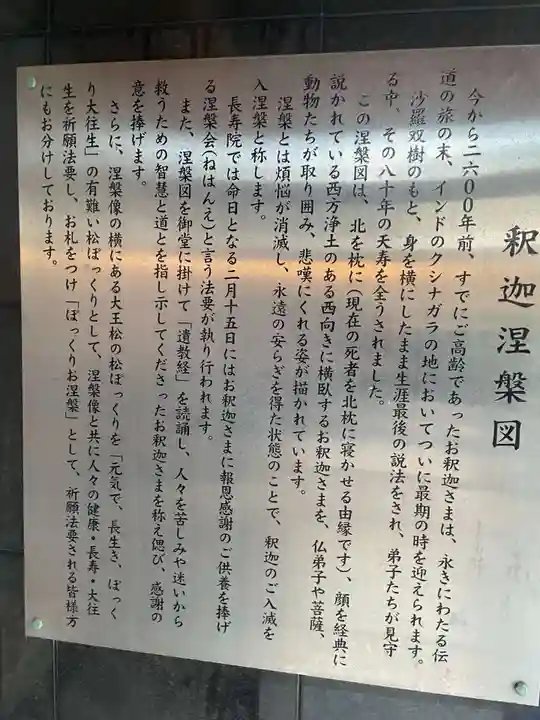 釈迦涅槃図
今から二六〇〇年前、すでにご高齢であったお釈迦さまは、永きにわたる伝
道の旅の末、インドのクシナガラの地においてついに最期の時を迎えられます。
沙羅双樹のもと、身を横にしたまま生涯最後の説法をされ、弟子たちが見守
る中、その八十年の天寿を全うされました。
この涅槃図は、北を枕に(現在の死者を北枕に寝かせる由縁です)、顔を経典に
説かれている西方浄土のある西向きに横臥するお釈迦さまを、仏弟子や菩薩、
動物たちが取り囲み、悲嘆にくれる姿が描かれています。
涅槃とは煩悩が消滅し、永遠の安らぎを得た状態のことで、釈迦のご入滅を
入涅槃と称します。
長寿院では命日となる二月十五日にはお釈迦さまに報恩感謝のご供養を捧げ
る涅槃会(ねはんえ)と言う法要が執り行われます。
また、涅槃図を御堂に掛けて「遺教経」を読誦し、人々を苦しみや迷いから
救うための智慧と道とを指し示してくださったお釈迦さまを称え偲び、感謝の
意を捧げます。
さらに、涅槃像の横にある大王松の松ぼっくりを「元気で、長生き、ぽっく
り大往生」の有難い松ぼっくりとして、涅槃像と共に人々の健康・長寿・大往
生を祈願法要し、お札をつけ「ぽっくりお涅槃」として、祈願法要される皆様方
にもお分けしております。